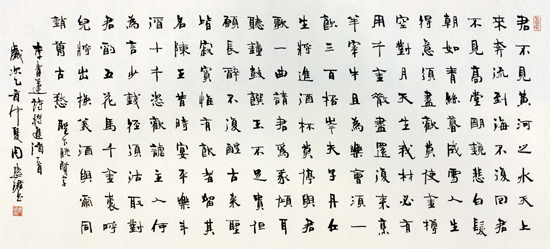 君不見黃河之水天上
來奔流到海不復回君
不見高堂明鏡悲白髮
朝如青絲暮成雪人生
得意須盡歡莫使金樽
空對月天生我材必有
用千金散盡還復來烹
羊宰牛且為樂會須一
飲三百杯岑夫子丹丘
生將進酒杯莫停與君
歌一曲請君為我傾耳
聽鐘鼓饌玉不足貴但
願長醉不復醒古來聖
皆寂寞惟有飲者留
名陳王昔時宴平樂斗
酒十千恣歡謔主人何
為言少錢徑須沽取對
君酌五花馬千金裘呼
兒將出換美酒與爾同
銷萬古愁 聖下脫賢字
李青蓮詩將進酒一首
歲次乙酉仲夏周